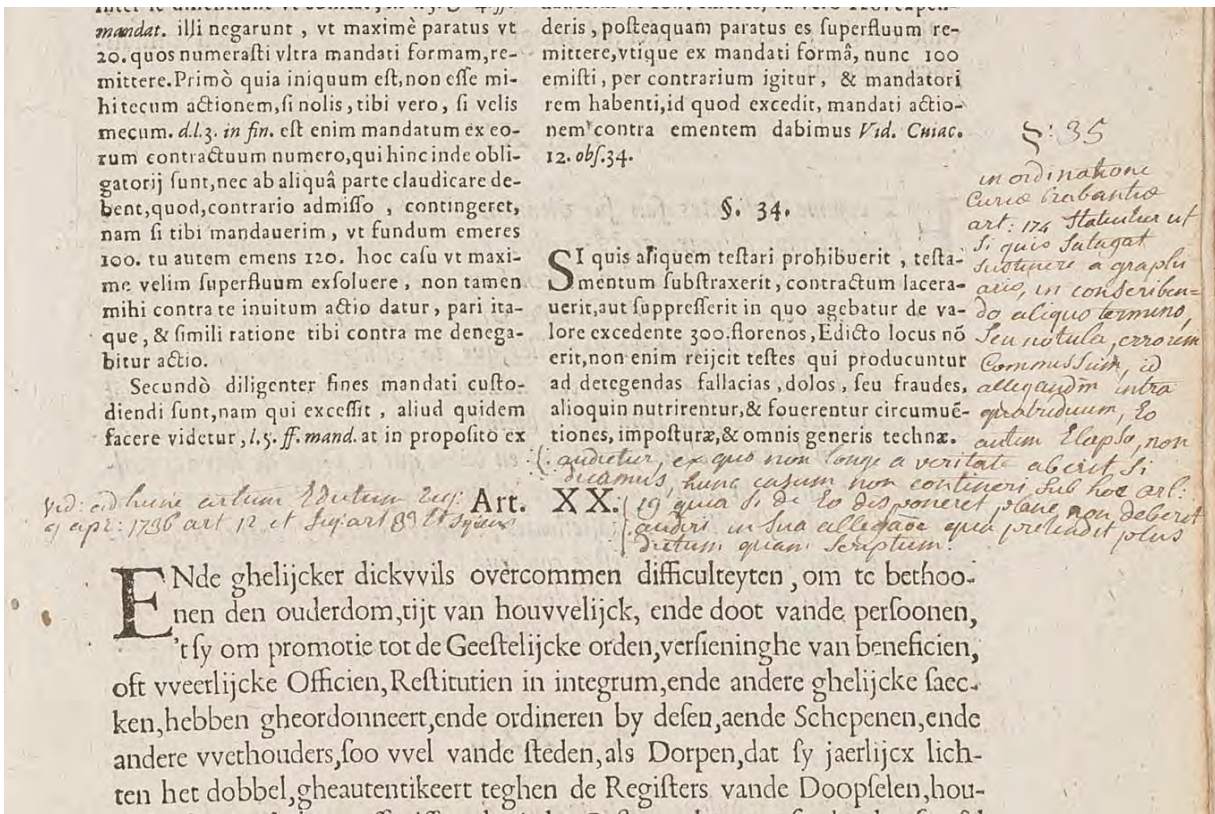 mandat. illi negarunt , vt maximè paratus vt
20. quos numeraſti vltra mandati formam,re-
mittere. Primò quia iniquum eſt,non eſſe mi-
hi tecum actionem,ſi nolis , tibi vero , ſi velis
mecum. d.l.3. in fin. eſt enim mandatum ex eo-
rum contractuum numero,qui hinc inde obli-
gatorij ſunt,nec ab aliquâ parte claudicare de-
bent,quod,contrario admiſſo , contingeret,
nam ſi tibi mandauerim , vt fundum emeres
100. tu autem emens 120. hoc caſu vt maxi-
me velim ſuperfluum exſoluere , non tamen
mihi contra te inuitum actio datur , pari ita-
que , & ſimili ratione tibi contra me denega-
bitur actio.
Secundò diligenter fines mandati cuſto-
diendi ſunt,nam qui exceſſit , aliud quidem
facere videtur , l.5. ff. mand. at in propoſito ex
deris , poſteaquam paratus es ſuperfluum re-
mittere,vtique ex mandati formâ, nunc 100
emiſti , per contrarium igitur , & mandatori
rem habenti,id quod excedit, mandati actio-
nem contra ementem dabimus Vid. Cuiac.
12. obſ.34.
§. 34.
SI quis aliquem teſtari prohibuerit , teſta-
mentum ſubſtraxerit , contractum lacera-
uerit,aut ſuppreſſerit in quo agebatur de va-
lore excedente 300.florenos , Edicto locus nō
erit,non enim reijcit teſtes qui producuntur
ad detegendas fallacias , dolos , ſeu fraudes,
alioquin nutrirentur,& fouerentur circumuē-
tiones, impoſturæ,& omnis generis technæ.
§: 35
in ordinatione
Curiæ Brabantiæ
art: 174 Statuitur ut
Si quis Satagat
Sustinere a graphi
ario, in conscriben-
do aliquo termino,
Seu notula, errorem
Commissum, id
allegandum intra
quatriduum, Eo
autem Elapso, non
audietur, ex quo non longe a veritate aberit Si
dicamus, hunc casum non contineri Sub hoc art:
19 quia Si de Eo disponeret plane non deberet
audiri in Sua allegaõe qua prætendit plus
dictum quam Scriptum.
Vid: ad hunc artum Edictum Reg:
9 apr: 1736 art 12 et Seq: art 89
Art. XX.
ENde ghelijcker dickvvils overcommen difficulteyten , om te bethoo-
nen den ouderdom,tijt van houvvelijck, ende doot vande perſoonen,
't ſy om promotie tot de Geeſtelijcke orden,verſieninghe van beneficien,
oft vveerlijcke Officien, Reſtitutien in integrum,ende andere ghelijcke ſaec-
ken,hebben gheordonneert,ende ordineren by deſen,aende Schepenen,ende
andere vvethouders,ſoo vvel vande ſteden,als Dorpen,dat ſy jaerlijcx lich-
ten het dobbel,gheautentikeert teghen de Regiſters vande Doopſelen,hou-